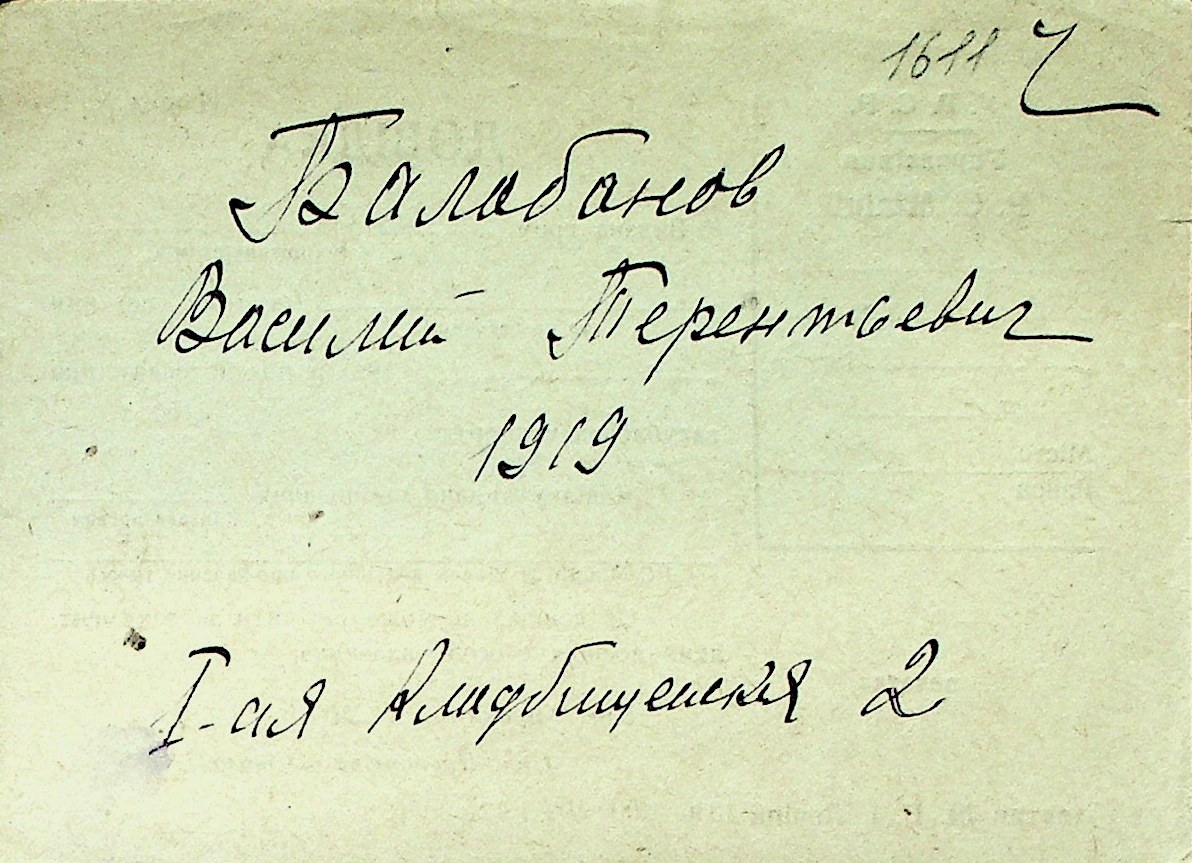 1611 Ч
Балабанов
Василий Терентьевич
1919
I-ая Кладбищенская 2